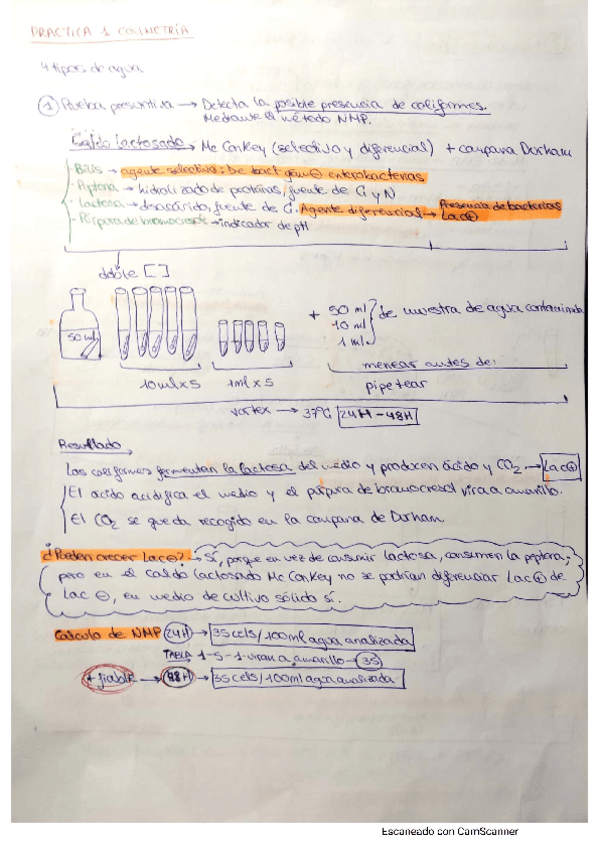 PRACTICA 1 COLIMETRÍA
4 tipos de agua
① Prueba presuntiva → Detecta la posible presencia de coliformes.
Mediante el método NMP.
Caldo lactosado → Mc Conkey (selectivo y diferencial) + campana Durham
- Bilis → agente selectivo: De bact gram ⊖ enterobacterias
- Peptona → hidrolizado de proteínas, fuente de C y N
- Lactosa → disacárido, fuente de C. Agente diferencial → Presencia de bacterias Lac⊕
- Púrpura de bromocresol → indicador de pH
doble [ ]
50 ml
10 ml x 5
1 ml x 5
+ 50 ml
10 ml
1 ml
de muestra de agua contaminada
menear antes de
pipetear
vortex → 37ºC 24H - 48H
Resultado
Los coliformes fermentan la lactosa del medio y producen ácido y CO2 → Lac⊕
El ácido acidifica el medio y el púrpura de bromocresol vira a amarillo.
El CO2 se queda recogido en la campana de Durham.
¿Pueden crecer Lac⊖? → Sí, porque en vez de consumir lactosa, consumen la peptona;
pero en el caldo lactosado Mc Conkey no se podrían diferenciar Lac⊕ de
Lac ⊖, en medio de cultivo sólido sí.
Calculo de NMP 24H → 35 cels/100ml agua analizada
TABLA 1-5-1 viran a amarillo → 35
+ fiable → 48H → 35 cels/100ml agua analizada
Escaneado con CamScanner